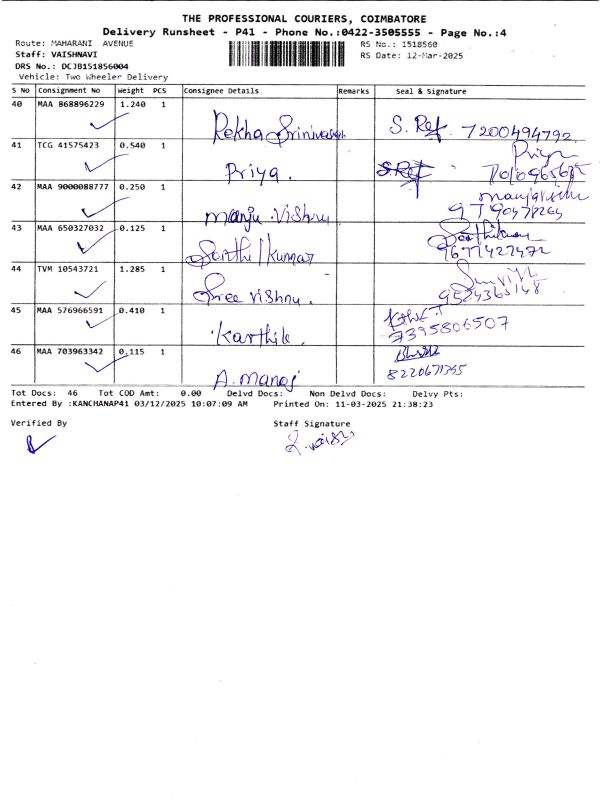 THE PROFESSIONAL COURIERS, COIMBATORE
Delivery Runsheet - P41 - Phone No.:0422-3505555 - Page No.:4
Route: MAHARANI AVENUE
RS No.: 1518560
Staff: VAISHNAVI
RS Date: 12-Mar-2025
DRS No.: DCJB151856004
Vehicle: Two Wheeler Delivery
S No Consignment No Weight PCS Consignee Details Remarks Seal & Signature
40 MAA 868896229 1.240 1
Rekha Srinivasan S. Ref. 7200494792
41 TCG 41575423 0.540 1
Priya. S.Ref Priya
42 MAA 9000088777 0.250 1
Manju Vishnu
43 MAA 650327032 0.125 1
9677427472
44 TVM 10543721 1.285 1
Sree Vishnu.
45 MAA 576966591 0.410 1
Karthik. 7395806507
46 MAA 703963342 0.115 1
A. Manoj 8220671795
Tot Docs: 46 Tot COD Amt: 0.00 Delvd Docs: Non Delvd Docs: Delvy Pts:
Entered By :KANCHANAP41 03/12/2025 10:07:09 AM Printed On: 11-03-2025 21:38:23
Verified By Staff Signature